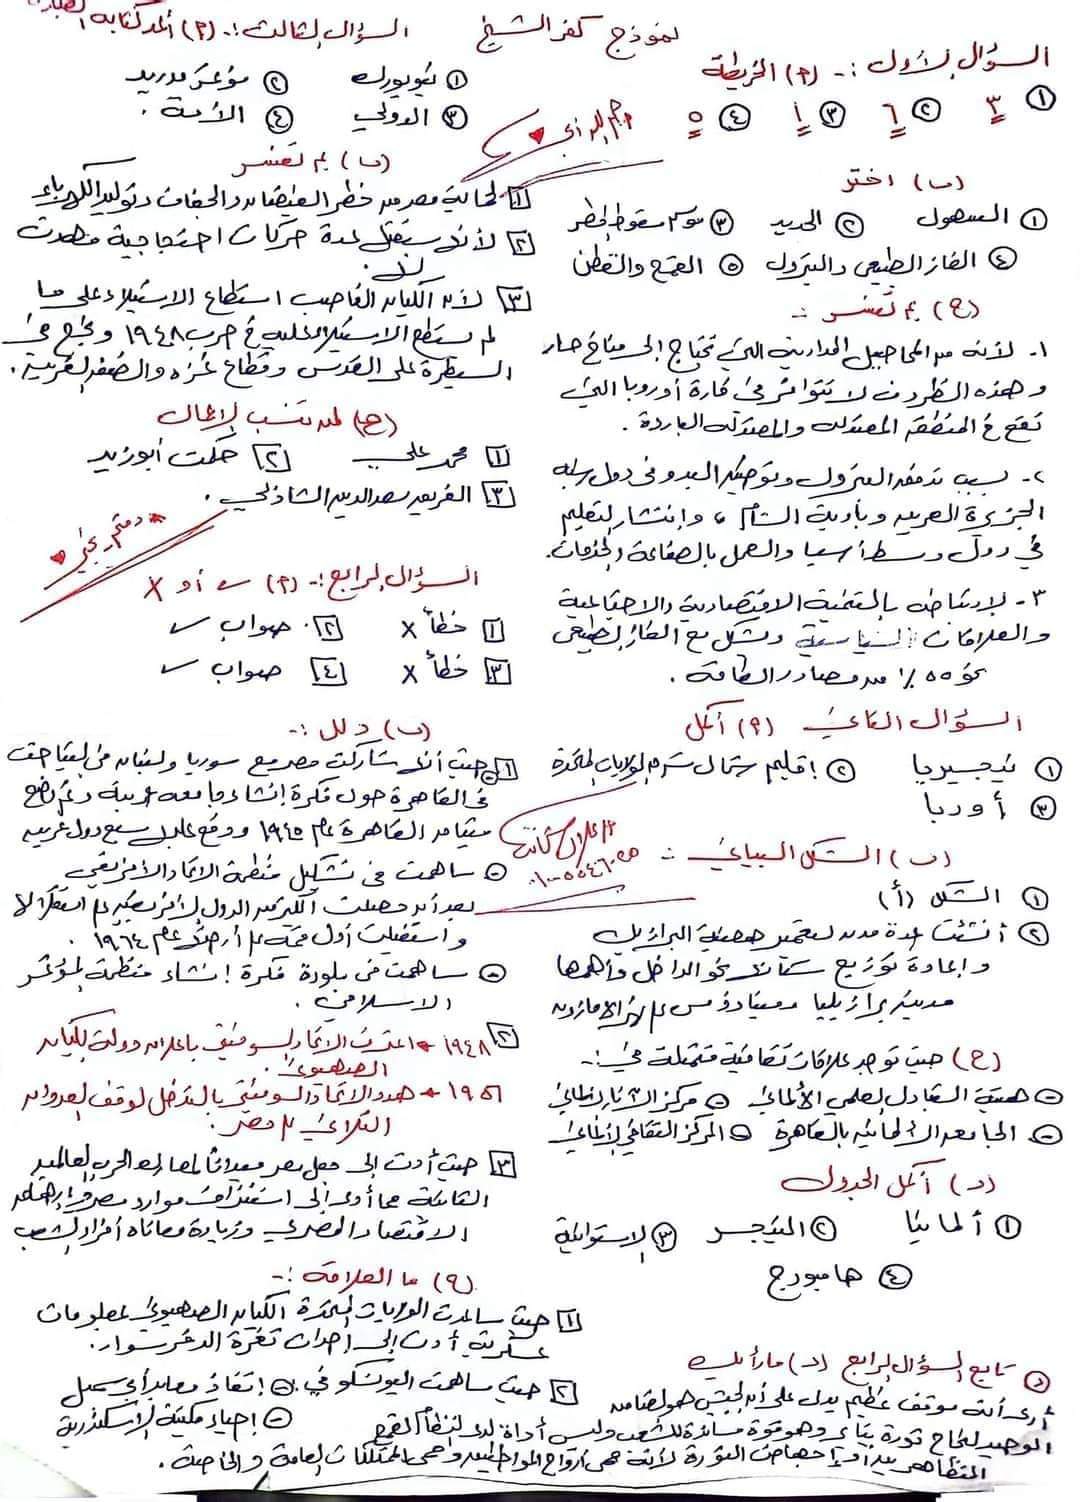 نموذج كفر الشيخ
السؤال الأول :- (٢) الخريطة
① ٣ ② ٦ ③ أ ④ ٥
(ب) اختر
① السهول ② الحديد ③ موسم سقوط المطر
④ الغاز الطبيعي والبترول ⑤ القمح والقطن
(ج) بم تفسر :-
١- لأنه من المحاصيل المدارية التي تحتاج إلى مناخ حار
وهذه الظروف لا تتوافر في قارة أوروبا التي
تقع في المنطقة المعتدلة والمعتدلة الباردة .
٢- بسبب تدفق البترول وتوطين البدو في دول شبه
الجزيرة العربية وبادية الشام ، وانتشار التعليم
في دول وسط آسيا والعمل بالصناعة والخدمات.
٣- لارتباطه بالتنمية الاقتصادية والاجتماعية
والعلاقات السياسية ويشكل مع الغاز الطبيعي
نحو ٥٥٪ من مصادر الطاقة .
السؤال الثاني (٢) أكمل
① نيجيريا ② إقليم شمال شرق الولايات المتحدة
③ أوروبا
(ب) الشكل البياني :-
① الشكل (أ)
② أنشئت عدة مدن لتعمير هضبة البرازيل
وإعادة توزيع سكانها نحو الداخل وأهمها
مدينة برازيليا وميناء ماناوس على نهر الأمازون
(ج) حيث توجد علاقات ثقافية متمثلة في :-
- هيئة التبادل العلمي الألماني - مركز الآثار الألماني
- الجامعة الألمانية بالقاهرة - المركز الثقافي الألماني
(د) أكمل الجدول
① ألمانيا ② النيجر ③ الاستوائية
④ هامبورج
السؤال الثالث :- (٢) أكمل
① نيويورك ② مؤتمر مدريد
③ الدولي ④ الأمة .
(ب) بم تفسر
١ لحماية مصر من خطر الفيضان والجفاف وتوليد الكهرباء
٢ لأنه ستقل عدة حركات احتجاجية مهدت
له.
٣ لأن الكيان الغاصب استطاع الاستيلاء على ما
لم يستطع الاستيلاء عليه في حرب ١٩٤٨ ونجح في
السيطرة على القدس وقطاع غزة والضفة الغربية .
(ج) لمن تنسب الأعمال
١ محمد علي ٢ حكمت أبو زيد
٣ الفريق سعد الدين الشاذلي .
السؤال الرابع :- (٢) ✓ أو X
١ خطأ X ٢ صواب ✓
٣ خطأ X ٤ صواب ✓
(ب) دلل :-
١ حيث أنها شاركت مصر مع سوريا ولبنان في المباحثات
في القاهرة حول فكرة إنشاء جامعة عربية وتم وضع
ميثاق القاهرة عام ١٩٤٥ ووقع عليه سبع دول عربية
- ساهمت في تشكيل منظمة الاتحاد الأفريقي
بعد أن حصلت أكثرية الدول الأفريقية على استقلالها
واستقبلت أول قمة على أرضها عام ١٩٦٤ .
- ساهمت في بلورة فكرة إنشاء منظمة المؤتمر
الإسلامي .
٢ ١٩٤٨ * اعترف الاتحاد السوفيتي بإعلان دولة الكيان
الصهيوني .
١٩٥٦ * هدد الاتحاد السوفيتي بالتدخل لوقف العدوان
الثلاثي على مصر .
٣ حيث أدت إلى جعل مصر ميداناً لمعارك الحرب العالمية
الثانية مما أدى إلى استنزاف موارد مصر وإرهاق
الاقتصاد المصري وزيادة معاناة أفراد الشعب
(ج) ما العلاقة :-
١ حيث ساعدت الولايات المتحدة الكيان الصهيوني بمعلومات
عسكرية أدت إلى إحداث ثغرة الدفرسوار .
٢ حيث ساهمت اليونسكو في :- - إنقاذ معابد أبي سمبل
- إحياء مكتبة الإسكندرية
تابع السؤال الرابع (د) ما رأيك
أرى أنه موقف عظيم يدل على أن الجيش هو الضامن
الوحيد لنجاح ثورة يناير وهو قوة مساندة للشعب وليس أداة لدى النظام لقمع
المتظاهرين أو إجهاض الثورة لأنه حمى أرواح المواطنين وحمى الممتلكات العامة والخاصة .